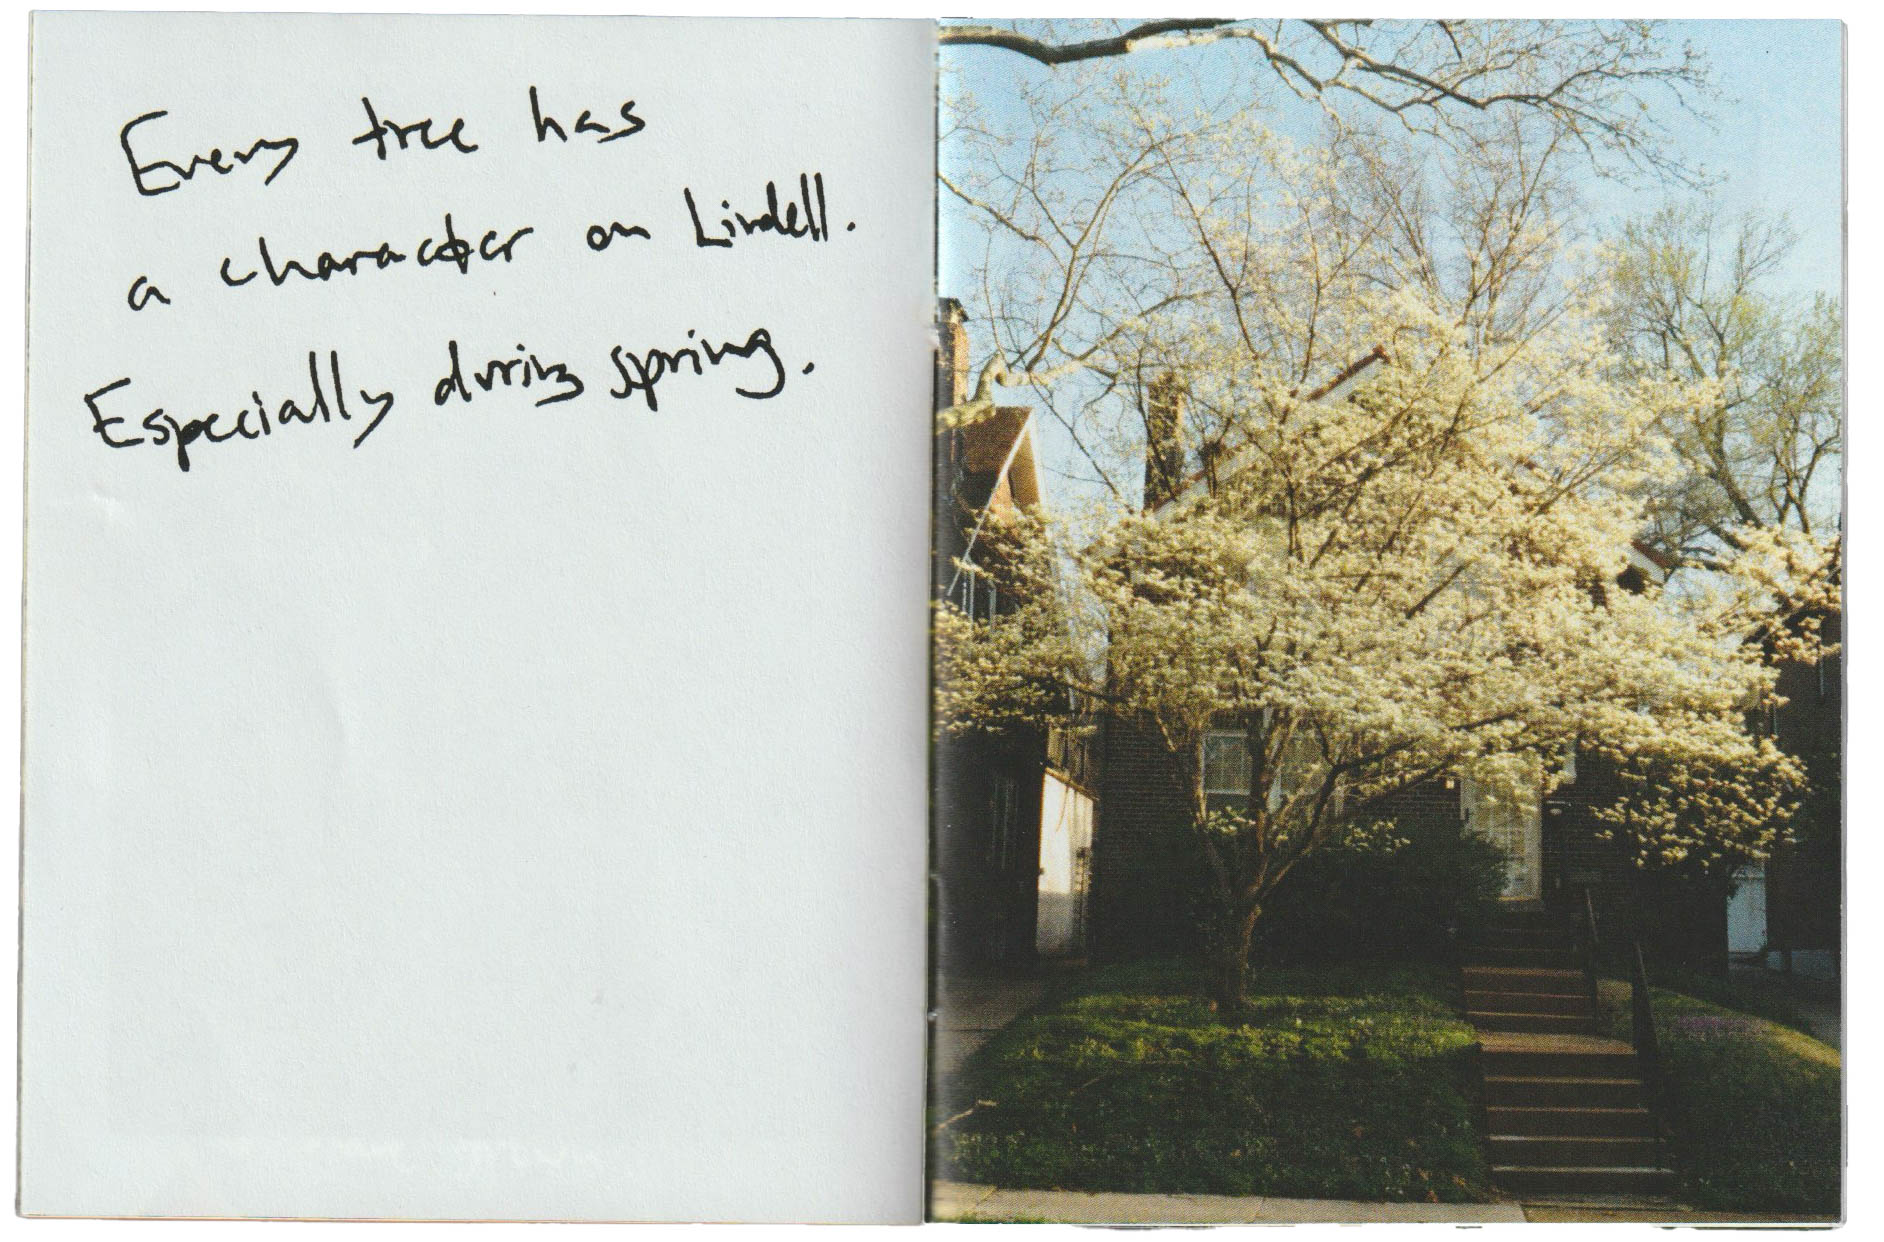 Every tree has
a character on Lindell.
Especially during spring.